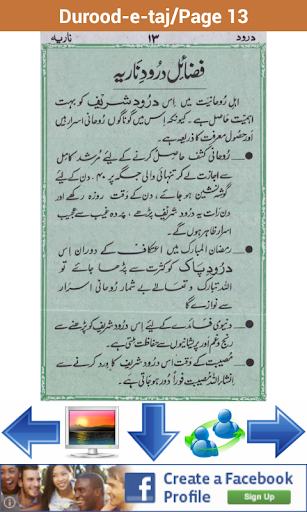 Durood-e-taj/Page 13
درود ۱۳ ناریہ
فضائلِ درودِ ناریہ
اہل روحانیت میں اِس درود شریف کو بہت
اہمیت حاصل ہے۔ کیونکہ اس میں گوناگوں روحانی اسرار ہیں
اور حصولِ معرفت کا ذریعہ ہے۔
روحانی کشف حاصل کرنے کے لئے مرشد کامل
سے اجازت لے کر تنہائی والی جگہ پر ۴۰ دن کے لئے
گوشہ نشین ہو جائے، دن کے وقت روزہ رکھے اور
دن رات یہ درود شریف پڑھے، پردہ غیب سے عجیب
اسرار ظاہر ہوں گے۔
رمضان المبارک میں اعتکاف کے دوران اِس
درودِ پاک کو کثرت سے پڑھا جائے تو
اللہ تبارک و تعالیٰ بے شمار روحانی اسرار
سے نوازے گا
دنیوی فائدے کے لئے اِس درود شریف کو پڑھنے سے
رنج و غم اور پریشانیوں سے حفاظت ملتی ہے۔
مصیبت کے وقت اس درود شریف کا ورد کرنے سے
انشاء اللہ مصیبت فوراً دور ہو جاتی ہے۔
Create a Facebook
Profile
Sign Up